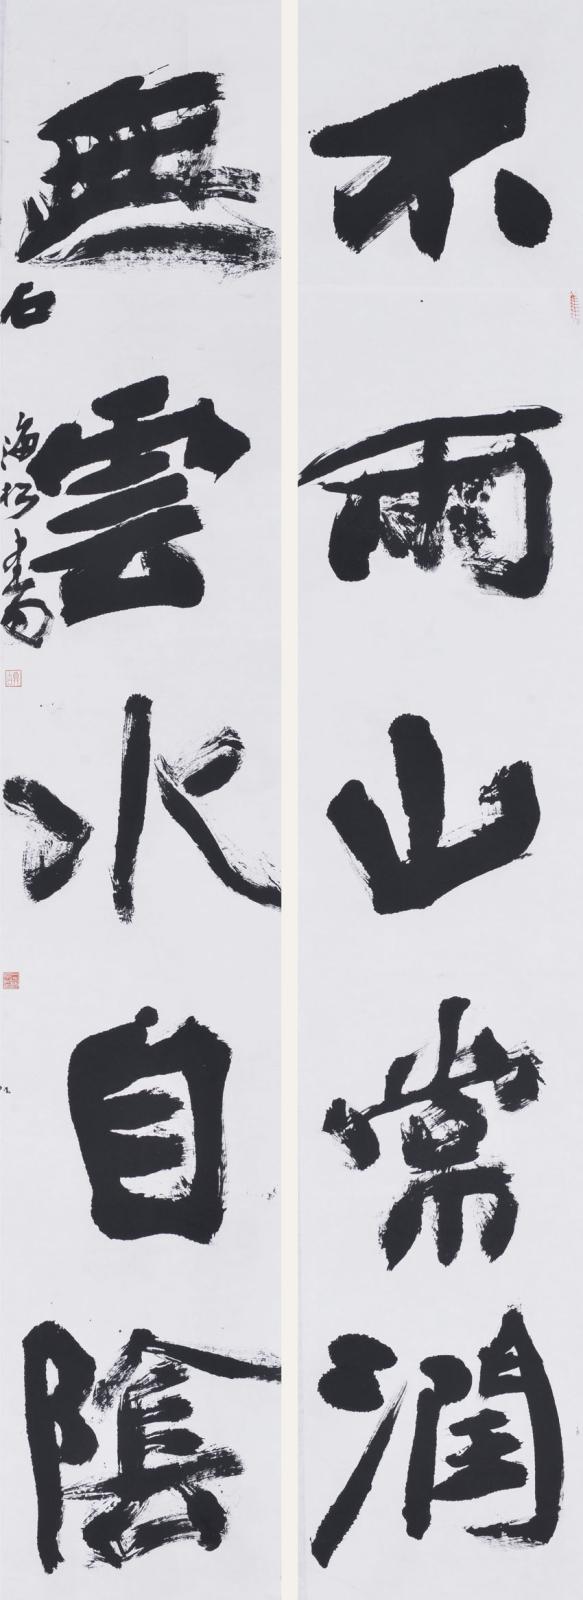 不雨山常潤
無雲水自陰
石海松書